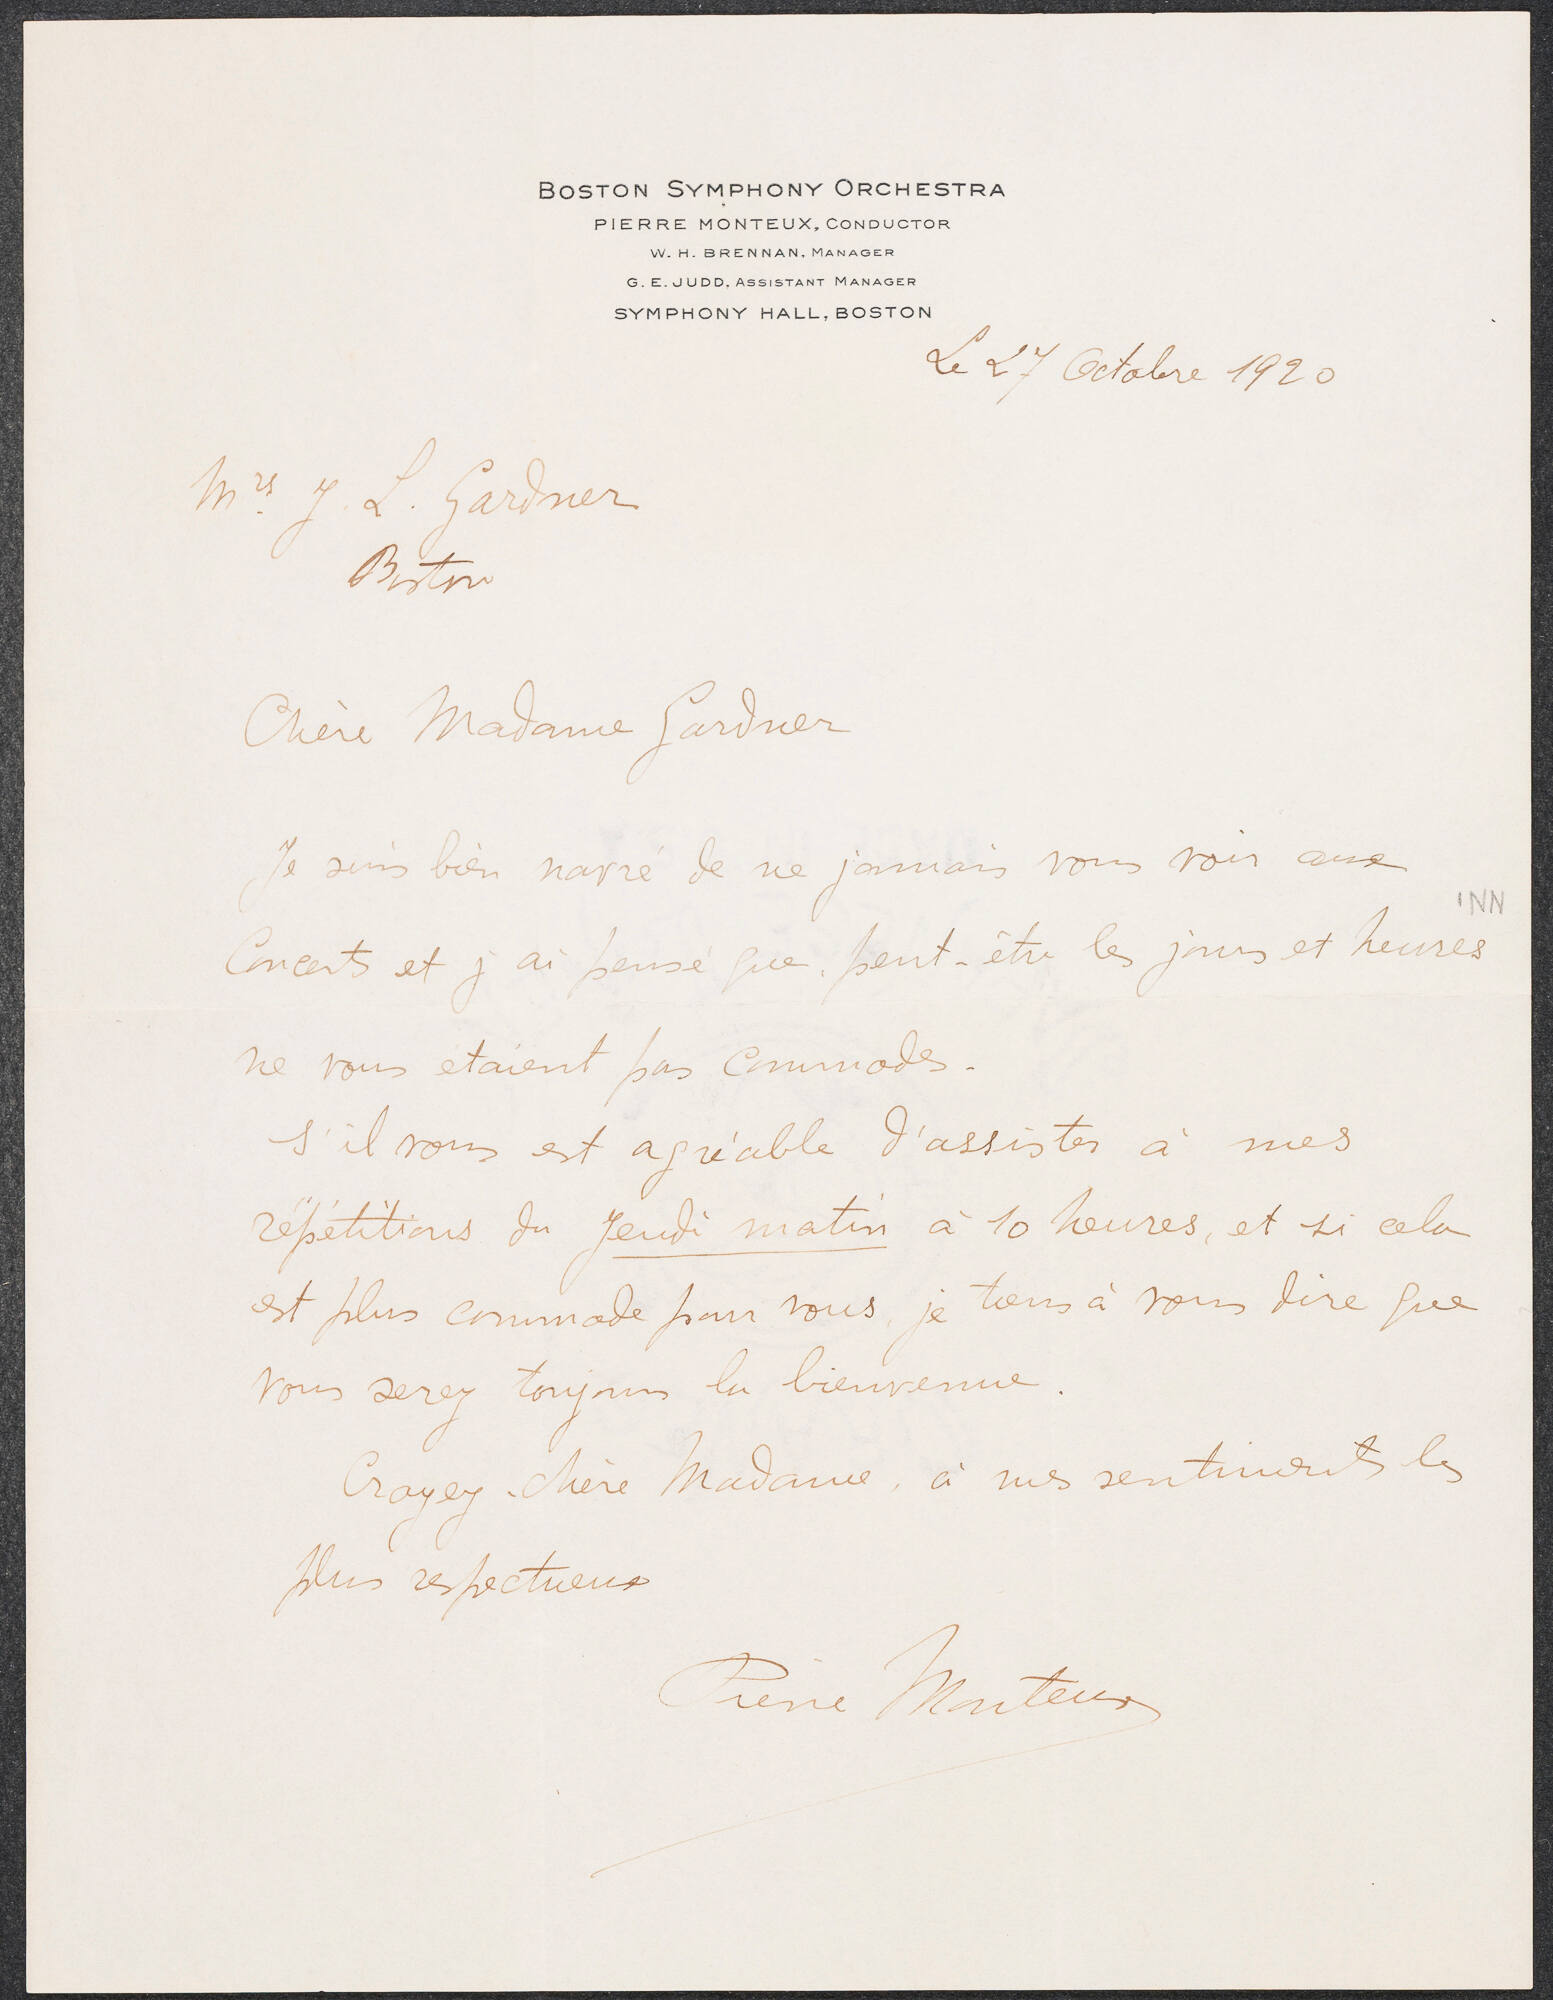 BOSTON SYMPHONY ORCHESTRA
PIERRE MONTEUX, CONDUCTOR
W. H. BRENNAN, MANAGER
G. E. JUDD, ASSISTANT MANAGER
SYMPHONY HALL, BOSTON
Le 27 Octobre 1920
Mrs. J. L. Gardner
Boston
Chère Madame Gardner
Je suis bien navré de ne jamais vous voir aux
Concerts et j'ai pensé que, peut-être les jours et heures
ne vous étaient pas commodes.
S'il vous est agréable d'assister à mes
répétitions du Jeudi matin à 10 heures, et si cela
est plus commode pour vous, je tiens à vous dire que
vous serez toujours la bienvenue.
Croyez, chère Madame, à mes sentiments les
plus respectueux
Pierre Monteux